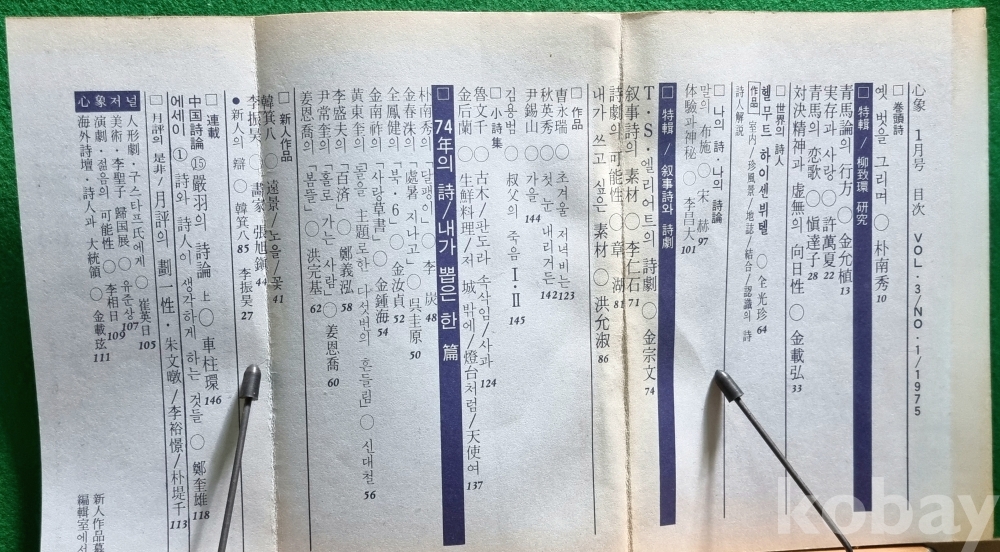 心象 1月号 目次 VOL.3/NO.1/1975
□ 巻頭詩
옛 벗을 그리며 ○ 朴南秀 10
□ 特輯 / 柳致環 硏究
青馬論의 行方 ○ 金允植 13
実存과 사랑 ○ 許萬夏 22
青馬의 恋歌 ○ 愼達子 28
対決精神과 虛無의 向日性 ○ 金載弘 33
□ 世界의 詩人
헬무트 하이센뷔텔 ○ 全光珍 64
作品 室内/珍風景/地誌/結合/認識의 詩
詩人解説
□ 나의 詩·나의 詩論
말의 布施 ○ 宋赫 97
体験과 神秘 ○ 李昌大 101
□ 特輯 / 叙事詩와 詩劇
T·S·엘리어트의 詩劇 ○ 金宗文 74
叙事詩의 素材 ○ 李仁石 71
詩劇의 可能性 ○ 章湖 81
내가 쓰고 싶은 素材 ○ 洪允淑 86
□ 作品
曺永瑞 ○ 초겨울 저녁비는 123
秋英秀 ○ 첫눈 내리거든 142
尹錫山 ○ 가을 144
김용범 ○ 叔父의 죽음 Ⅰ·Ⅱ 145
□ 小詩集
魯文千 ○ 古木/판도라 속사임/사과 124
金后蘭 ○ 生鮮料理/저 城밖에/燈台처럼/天使여 137
□ 74年의 詩/내가 뽑은 한 篇
朴南秀의 「담팽이」 ○ 李炭 48
金春洙의 「處暑 지나고」 ○ 吳圭原 50
全鳳健의 「북·6」 ○ 金汝貞 52
金南祚의 「사랑草書」 ○ 金鍾海 54
黃東奎의 「돌을 主題로 한 다섯번의 흔들림」 ○ 신대철 56
李盛夫의 「百済」 ○ 鄭義泓 58
尹常奎의 「홀로 가는 사람」 ○ 姜恩喬 60
姜恩喬의 「봄들」 ○ 洪完基 62
□ 新人作品
韓箕八 ○ 遠景/노을/꽃 41
李振昊 ○ 畵家 張旭鎭 44
● 新人의 辯 ○ 韓箕八 85 李振昊 27
□ 連載
中国詩論 ⑮ 嚴羽의 詩論 上 ○ 車柱環 146
에세이 ① 詩와 詩人이 생각하게 하는 것들 ○ 鄭奎雄 118
□ 月評의 是非/月評의 劃一性·朱文暾/李裕憬/朴堤千 113
心象저널
人形劇·구스타프氏에게 ○ 崔英日 105
美術·李聖子 歸国展 ○ 유준상 107
演劇·젊음의 可能性 ○ 李相日 109
海外詩壇·詩人과 大統領 ○ 金載玹 111
新人作品募
編輯室에서
kobay